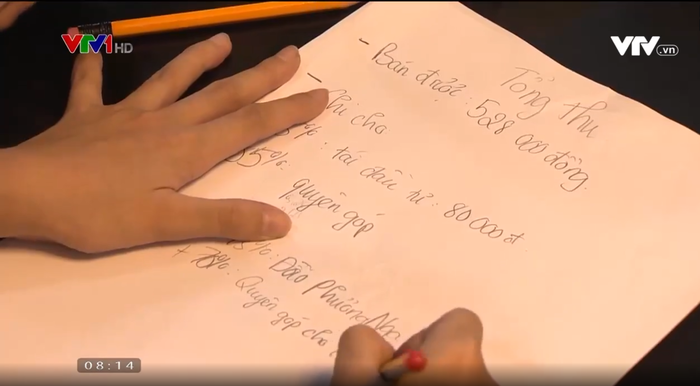 VTV1 HD
VTV.vn
Tổng thu
- Bán được: 528 000 đồng.
- Chi cho
%: tái đầu tư: 80 000 đ
35%: quyên góp
%: Đào Phương
+ %: Quyên góp cho
08:14